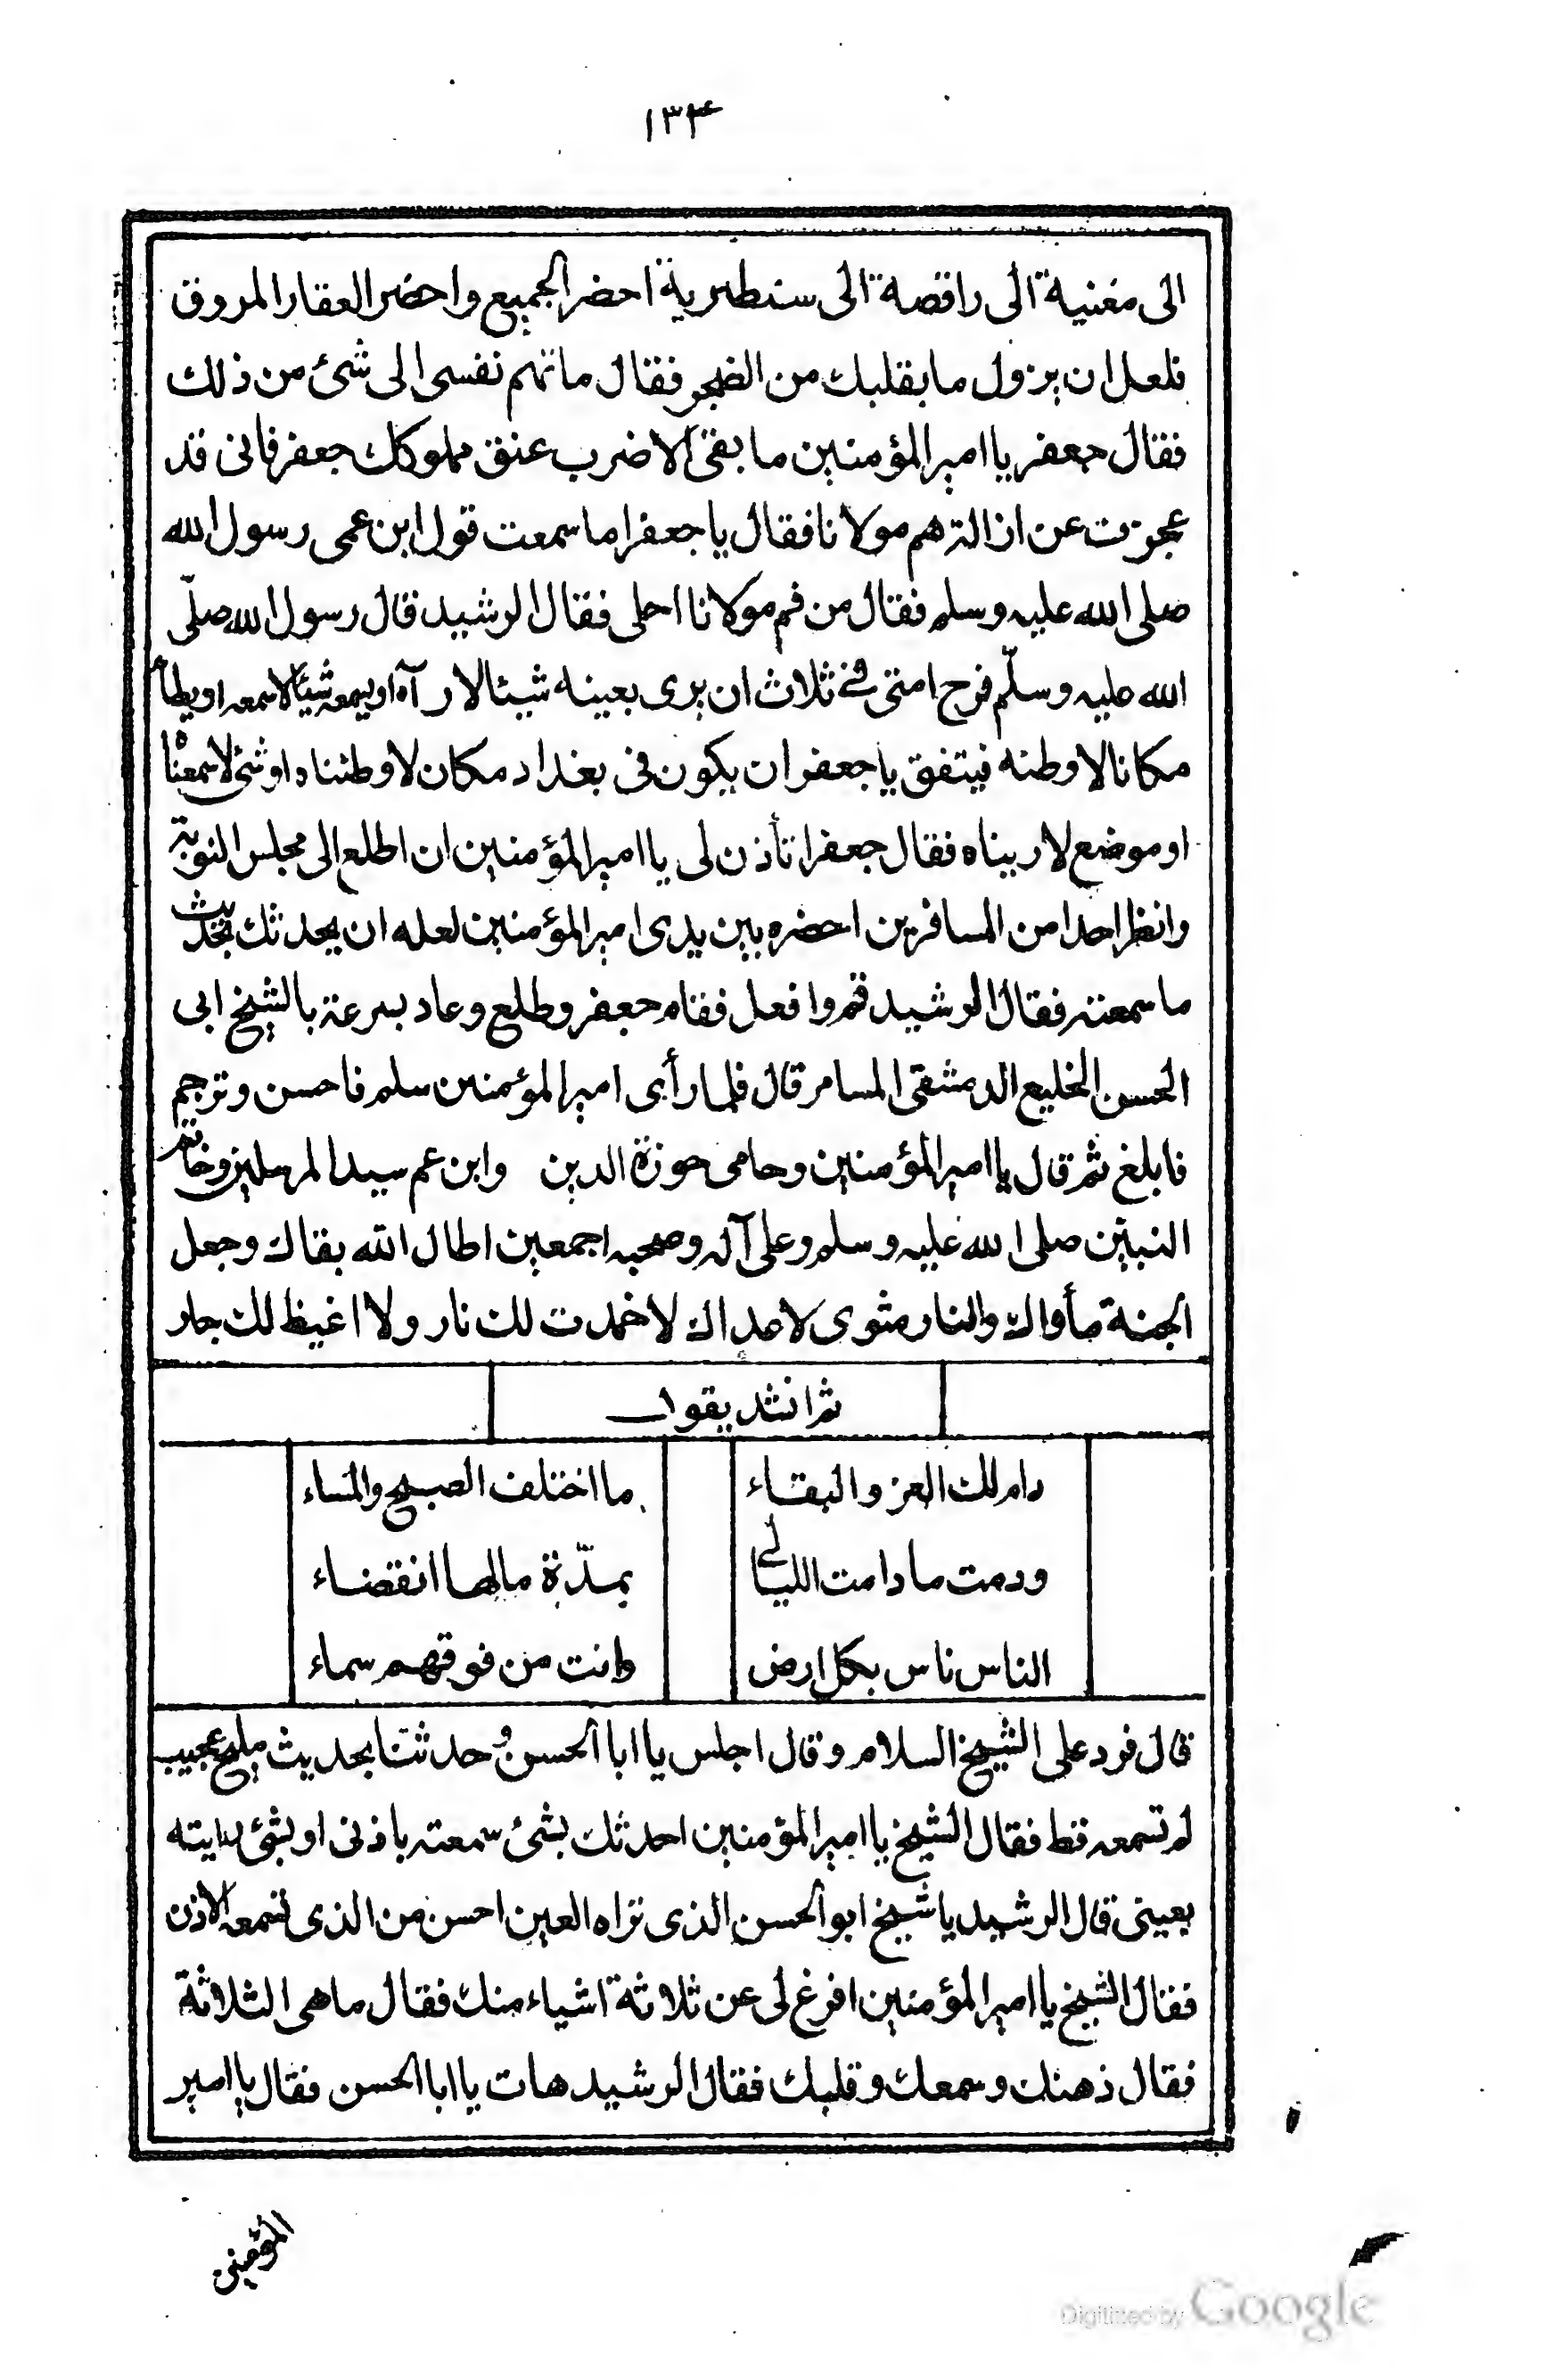 ١٣۴
الى مغنية الى راقصة الى سنطيرية احضر الجميع واحضر العقار المروق
فلعل ان يزول ما بقلبك من الضجر فقال ما تهم نفسى الى شئ من ذلك
فقال جعفر يا امير المؤمنين ما بقى الا ضرب عنق مملوكك جعفر فانى قد
عجزت عن ازالة هم مولانا فقال يا جعفر اما سمعت قول ابن عمى رسول الله
صلى الله عليه وسلم فقال من فم مولانا احلى فقال الرشيد قال رسول الله صلّى
الله عليه وسلّم فرج امتى فى ثلاث ان يرى بعينه شيئا لا رآه او يسمعه شيئا لا سمعه او يطأ
مكانا لا وطئه فيتفق يا جعفر ان يكون فى بغداد مكان لا وطئناه او شئ لا سمعناه
او موضع لا ريناه فقال جعفر اتأذن لى يا امير المؤمنين ان اطلع الى مجلس النوبة
وانظر احدا من المسافرين احضره بين يدى امير المؤمنين لعله ان يحدثك بحديث
ما سمعته فقال الرشيد قم وافعل فقام جعفر وطلع وعاد بسرعة بالشيخ ابى
الحسن الخليع الدمشقى المسامر قال فلما رأى امير المؤمنين سلم فاحسن وترجم
فابلغ ثم قال يا امير المؤمنين وحامى حوزة الدين وابن عم سيد المرسلين وخاتم
النبيّن صلى الله عليه وسلم وعلى آله وصحبه اجمعين اطال الله بقاك وجعل
الجنة مأواك والنار مثوى لاعداك لا خمدت لك نار ولا اغيظ لك جار
ثم انشد يقول
دام لك العز والبقاء ما اختلف الصبح والمساء
ودمت ما دامت الليالى بمدّة ما لها انقضاء
الناس ناس بكل ارض وانت من فوقهم سماء
قال فرد على الشيخ السلام وقال اجلس يا ابا الحسن وحدثنا بحديث مليح عجيب
لم تسمعه قط فقال الشيخ يا امير المؤمنين احدثك بشئ سمعته باذنى او بشئ رايته
بعينى قال الرشيد يا شيخ ابو الحسن الذى تراه العين احسن من الذى تسمعه الاذن
فقال الشيخ يا امير المؤمنين افرغ لى عن ثلاثة اشياء منك فقال ما هى الثلاثة
فقال ذهنك وسمعك وقلبك فقال الرشيد هات يا ابا الحسن فقال يا امير
المؤمنين
Digitized by Google